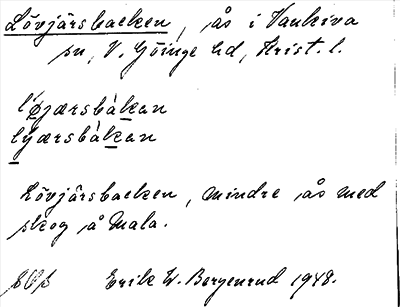 Lövjärsbacken, ås i Vankiva
sn, V. Göinge hd, Krist. l.
løjærsbàkan
lýærsbàkan
Lövjärsbacken, mindre ås med
skog å Mala.
Erik W. Bergenrud 1948.